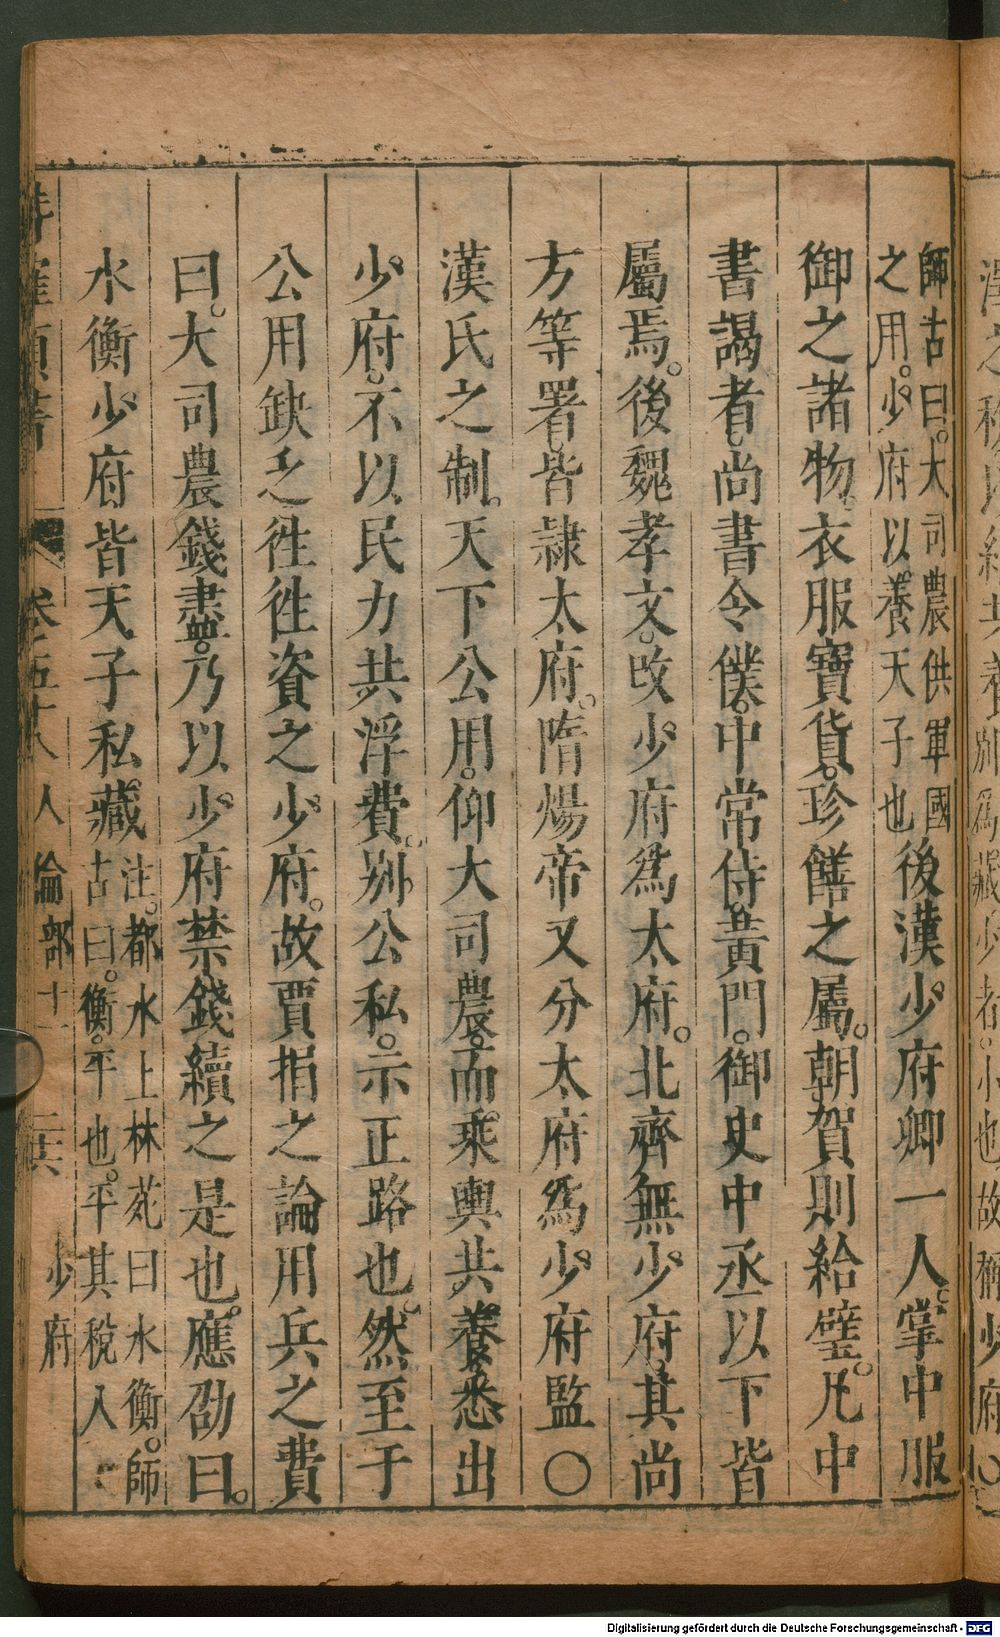 師古曰。大司農供軍國
之用。少府以養天子也
後漢少府卿一人。掌中服
御之諸物。衣服寶貨。珍饍之屬。朝賀則給璧。凡中
書謁者尚書令僕。中常侍。黃門。御史中丞以下皆
屬焉。後魏孝文。改少府爲太府。北齊無少府。其尚
方等署。皆隷太府。隋煬帝又分太府爲少府監〇
漢氏之制。天下公用。仰大司農。而乘輿共養。悉出
少府。不以民力共浮費。別公私。示正路也。然至于
公用缺乏徃徃資之少府。故賈捐之論用兵之費
曰。大司農錢盡。乃以少府禁錢續之是也。應劭曰。
水衡少府。皆天子私藏
注。都水上林苑曰水衡。師
古曰。衡。平也。平其稅入
卷五十八 人倫部十一 二六 少府
Digitalisierung gefördert durch die Deutsche Forschungsgemeinschaft - DFG